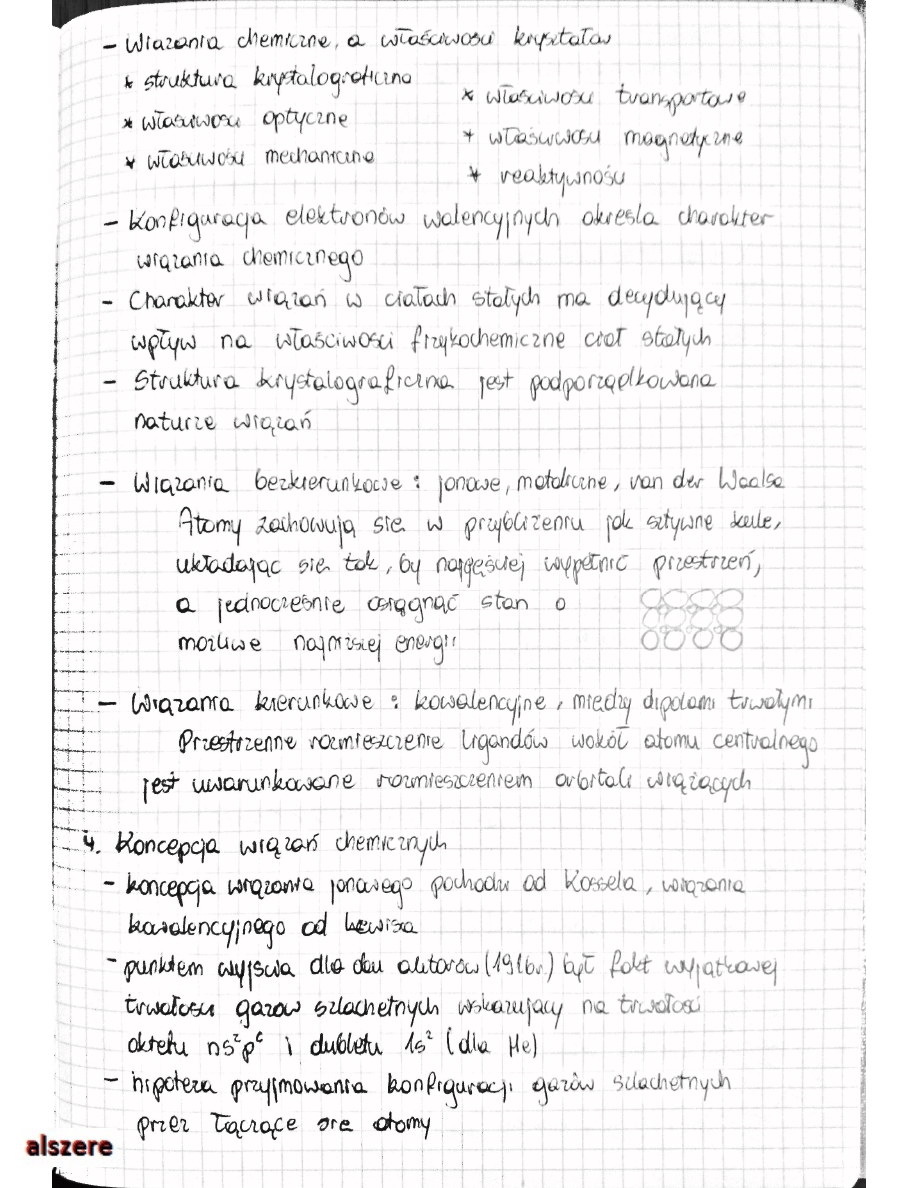 - Wiązania chemiczne, a właściwości kryształów
* struktura krystalograficzna
* właściwości optyczne
* właściwości mechaniczne
* właściwości transportowe
* właściwości magnetyczne
* reaktywności
- Konfiguracja elektronów walencyjnych określa charakter
wiązania chemicznego
- Charakter wiązań w ciałach stałych ma decydujący
wpływ na właściwości fizykochemiczne ciał stałych
- Struktura krystalograficzna jest podporządkowana
naturze wiązań
- Wiązania bezkierunkowe : jonowe, metaliczne, van der Waalsa
Atomy zachowują się w przybliżeniu jak sztywne kule,
układając się tak, by najgęściej wypełnić przestrzeń,
a jednocześnie osiągnąć stan o
możliwe najniższej energii
- Wiązania kierunkowe : kowalencyjne, między dipolami trwałymi
Przestrzenne rozmieszczenie ligandów wokół atomu centralnego
jest uwarunkowane rozmieszczeniem orbitali wiążących
4. Koncepcja wiązań chemicznych
- koncepcja wiązania jonowego pochodzi od Kossela, wiązania
kowalencyjnego od Lewisa
- punktem wyjścia dla obu autorów (1916r.) był fakt wyjątkowej
trwałości gazów szlachetnych wskazujący na trwałość
oktetu ns²p⁶ i dubletu 1s² (dla He)
- hipoteza przyjmowania konfiguracji gazów szlachetnych
przez łączące się atomy
alszere